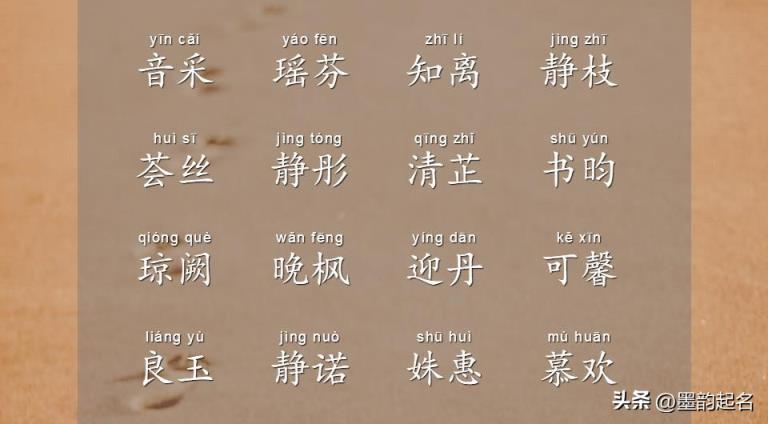 yīn cǎi yáo fēn zhī lí jìng zhī
音采 瑶芬 知离 静枝
huì sī jìng tóng qīng zhǐ shū yún
荟丝 静彤 清芷 书昀
qióng què wǎn fēng yíng dān kě xīn
琼阙 晚枫 迎丹 可馨
liáng yù jìng nuò shū huì mù huān
良玉 静诺 姝惠 慕欢
头条 @墨韵起名